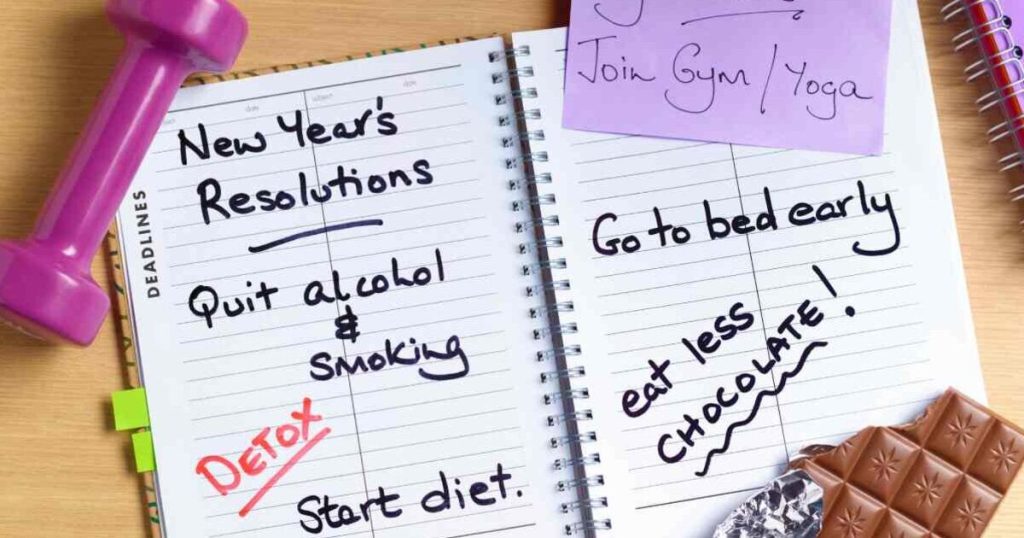 date
subject
date
DEADLINES
New Year's
Resolutions
Quit alcohol
&
smoking
DETOX
Start diet.
Join Gym / Yoga
Go to bed early
eat less
CHOCOLATE!